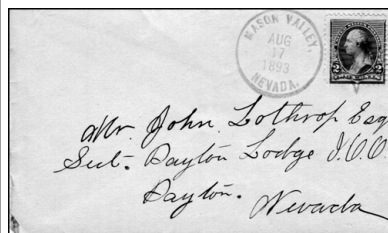 MASON VALLEY,
AUG
17
1893
NEVADA.
2 2
Mr. John Lothrop Esq
Sect. Dayton Lodge I.O.O
Dayton.
Nevada